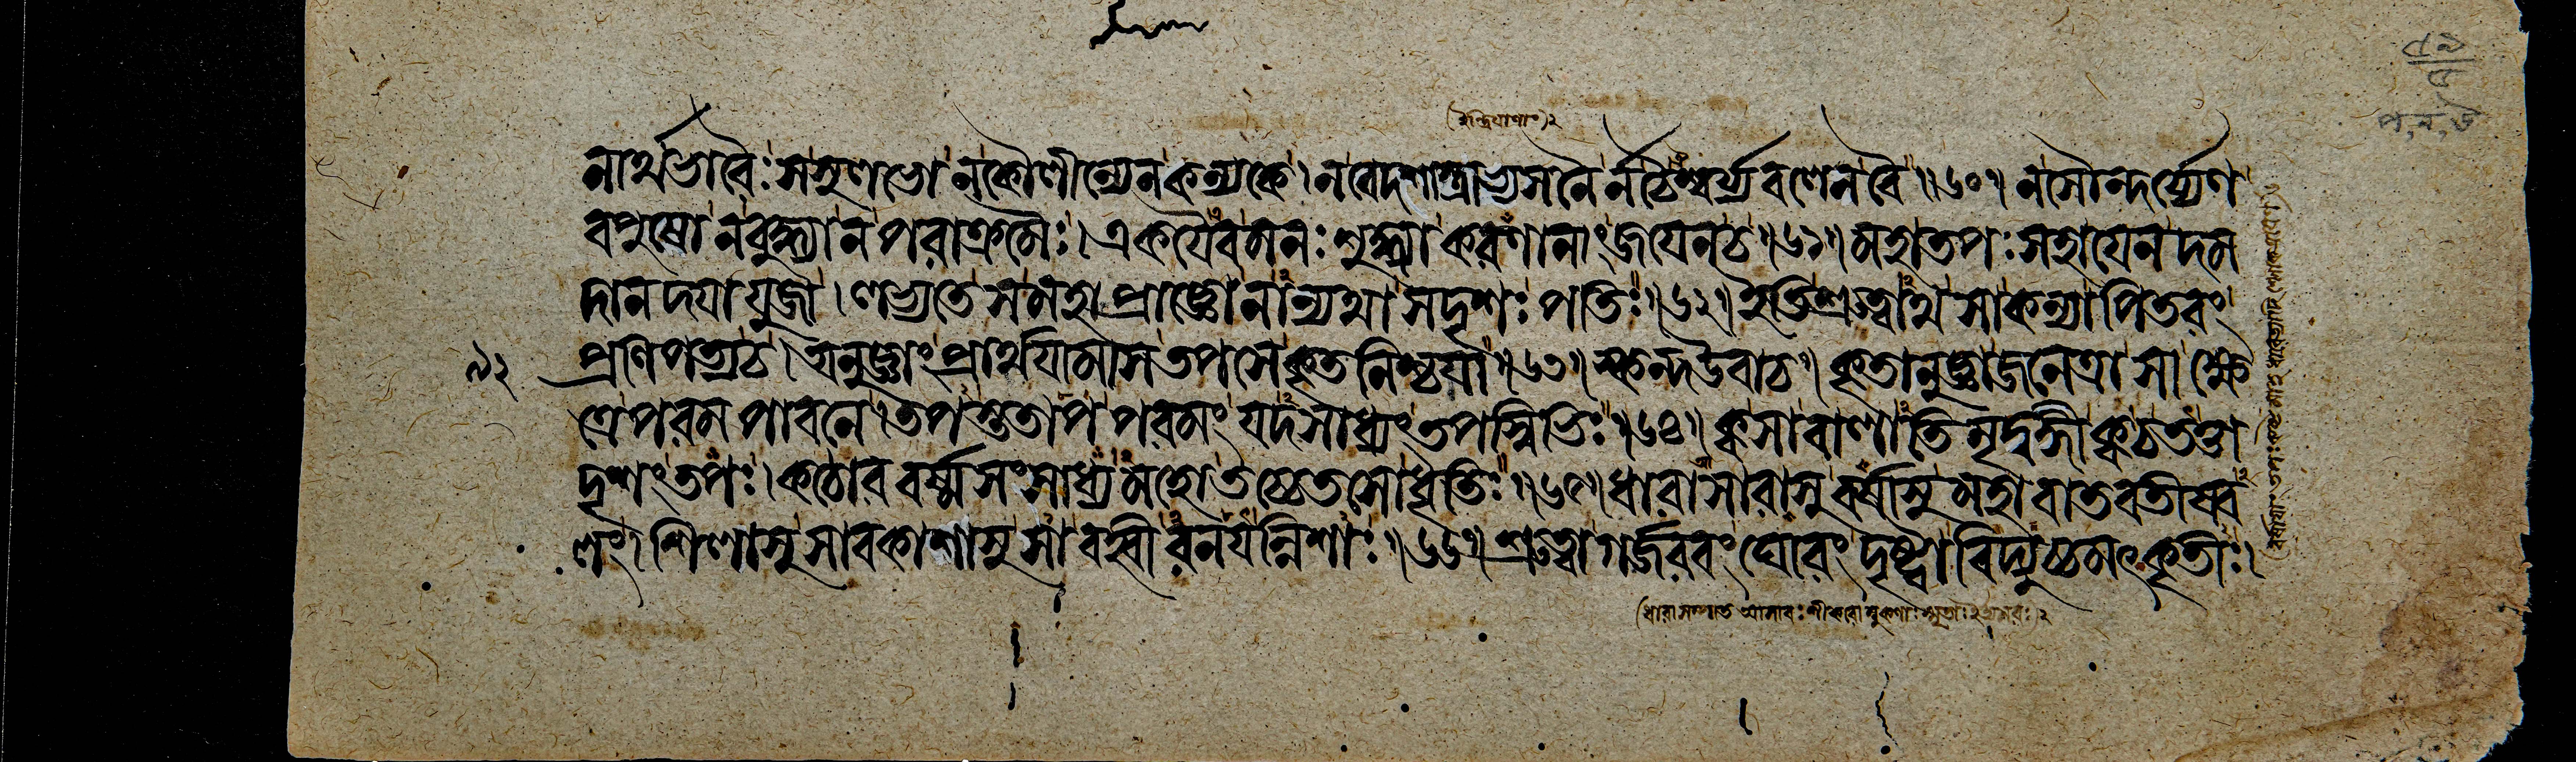 (ইন্দ্রিয়াণাং)২
নার্থভাবৈঃ সসুলভো ন কৌলীন্যেন কন্যকে। ন বেদশাস্ত্রাভ্যসনৈর্ন চৈশ্বর্য্যবলেন বৈ॥৬০॥ ন সৌন্দর্য্যেণ
বপুষো ন বুদ্ধ্যা ন পরাক্রমৈঃ। একয়ৈব মনঃশুদ্ধ্যা করণানাং জয়েন চ॥৬১॥ মহাতপঃসহায়েন দম
দানদয়াযুজা। লভ্যতে স মহাপ্রাজ্ঞো নান্যথা সদৃশঃ পতিঃ॥৬২॥ ইতি শ্রুত্বাথ সা কন্যা পিতরং
প্রণিপত্য চ। অনুজ্ঞাং প্রার্থয়ামাস তপসে কৃতনিশ্চয়া॥৬৩॥ স্কন্দ উবাচ॥ কৃতানুজ্ঞা জনেত্রা সা ক্ষে
ত্রে পরমপাবনে। তপস্ততাপ পরমং যদসাধ্যং তপস্বিভিঃ॥৬৪॥ ক্ব সা বালাতিমৃদ্বঙ্গী ক্ব চ তত্তা
দৃশং তপঃ। কঠোরবর্ষ্মসংসাধ্যমহো তচ্চেতসো ধৃতিঃ॥৬৫॥ ধারাসারাসু বর্ষাসু মহাবাতবতীষ্ব
লং। শিলাসু সাবকাশাসু সা বহ্বীরনয়ন্নিশাঃ॥৬৬॥ শ্রুত্বা গর্জরবং ঘোরং দৃষ্ট্বা বিদ্যুচ্চমৎকৃতীঃ।
(ধারাসম্পাত আসারঃ শীকরোম্বুকণাঃ স্মৃতাঃ